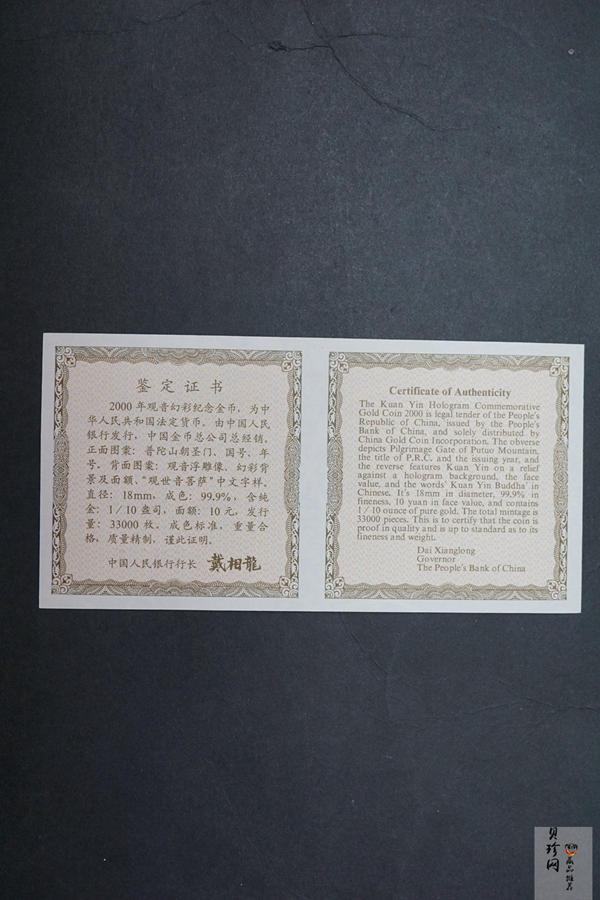 鉴定证书
2000年观音幻彩纪念金币，为中
华人民共和国法定货币。由中国人民
银行发行，中国金币总公司总经销。
正面图案：普陀山朝圣门、国号、年
号。背面图案：观音浮雕像、幻彩背
景及面额、“观世音菩萨”中文字样。
直径：18mm，成色：99.9%，含纯
金：1/10盎司，面额：10元，发行
量：33000枚。成色标准，重量合
格，质量精制，谨此证明。
中国人民银行行长 戴相龍
Certificate of Authenticity
The Kuan Yin Hologram Commemorative
Gold Coin 2000 is legal tender of the People's
Republic of China, issued by the People's
Bank of China, and solely distributed by
China Gold Coin Incorporation. The obverse
depicts Pilgrimage Gate of Putuo Mountain,
the title of P.R.C. and the issuing year, and
the reverse features Kuan Yin on a relief
against a hologram background, the face
value, and the words' Kuan Yin Buddha' in
Chinese. It's 18mm in diameter, 99.9% in
fineness, 10 yuan in face value, and contains
1/10 ounce of pure gold. The total mintage is
33000 pieces. This is to certify that the coin is
proof in quality and is up to standard as to its
fineness and weight.
Dai Xianglong
Governor
The People's Bank of China
贝珍网
藏品推荐